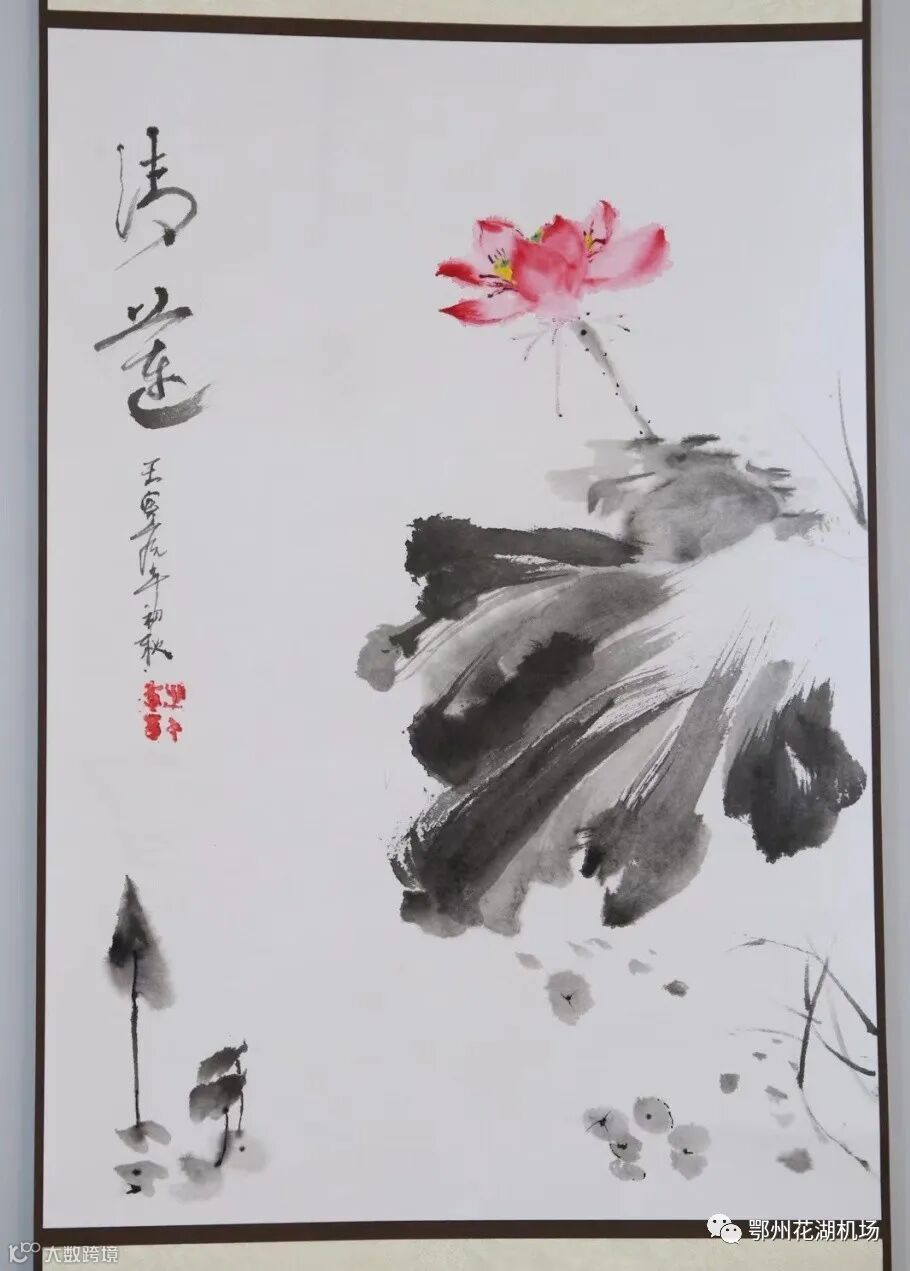 清蓮
壬寅虎年初秋
鄂州花湖机场
大数跨境